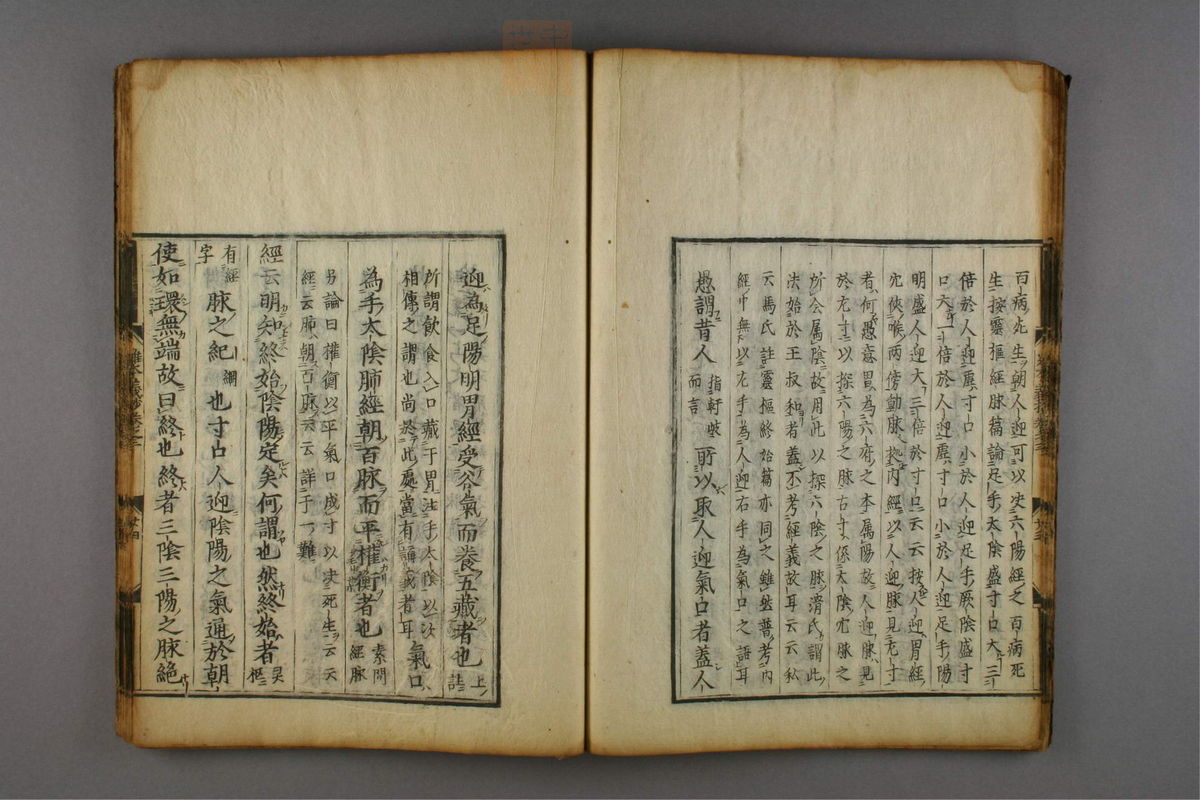 百病死生朝人迎可以决六陽經之百病死
生按靈樞經脉篇論足手太陰盛寸口大三
倍於人迎虛寸口小於人迎足手厥陰盛寸
口大一倍於人迎虛寸口小於人迎足手陽
明盛人迎大三倍於寸口云云按人迎胃經
穴俠喉兩傍動脉内經以人迎脉見左寸
者何愚意胃為六府之本属陽故人迎脉見
於左寸以探六陽之脉右寸係太陰穴脉之
所会属陰故用此以探六陰之脉滑氏謂此
法始於王叔和者蓋不考經義故耳云云私
云馬氏註靈樞終始篇亦同之雖然普考内
經中無以左手為人迎右手為氣口之語耳
愚謂昔人指軒岐而言所以取人迎氣口者蓋人
迎為足陽明胃經受谷氣而養五藏者也上註
所謂飲食入口藏于胃注手太陰以次
相傳之謂也尚於此處當有誦或者耳氣口
為手太陰肺經朝百脉而平權衡者也素問經脉
另論曰權衡以平氣口成寸以决死生云云
經云肺朝百脉云云詳于一難
經云明知終始陰陽定矣何謂也然終始者吴㮣
有經字脉之紀綱也寸口人迎陰陽之氣通於朝
使如環無端故曰終也終者三陰三陽之脉絶